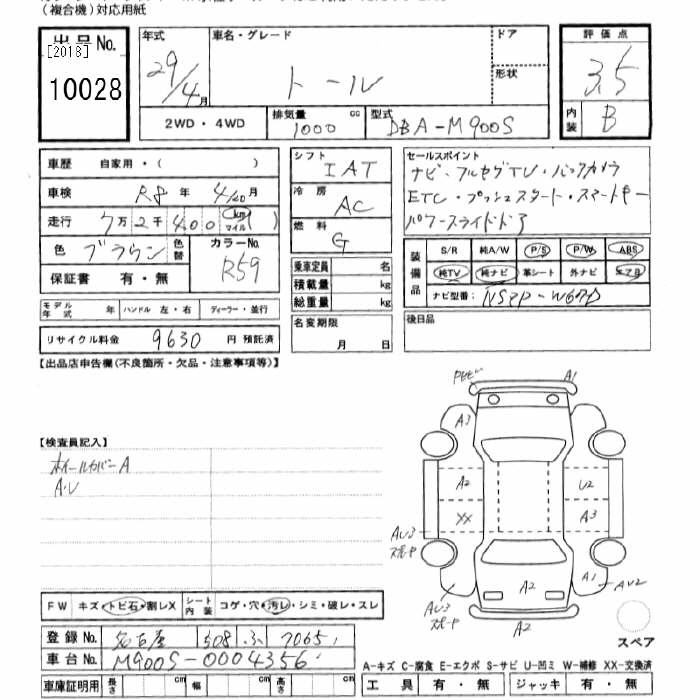 (複合機)対応用紙
出品No.
[2018]
10028
年式 29/4月
車名・グレード トール
ドア
形状
評価点 3.5
内装 B
2WD・4WD
排気量 1000 cc
型式 DBA-M900S
車歴 自家用・( )
車検 R8年 4/20月
走行 7万2千400 km マイル ( )
色 ブラウン 色替
カラーNo. R59
保証書 有・無
シフト IAT
冷房 AC
燃料 G
乗車定員 名
積載量 kg
総重量 kg
セールスポイント
ナビ・フルセグTV・バックカメラ
ETC・プッシュスタート・スマートキー
パワースライドドア
装備品 S/R 純A/W P/S P/W ABS
純TV 純ナビ 革シート 外ナビ エアB
ナビ型番: NSZP-W67D
モデル年式 年 ハンドル 左・右 ディーラー・並行
リサイクル料金 9630 円 預託済
名変期限 月 日
後日品
【出品店申告欄(不良箇所・欠品・注意事項等)】
A1
A3
A2 U2
XX A3
AU3
A2
A1 AU2
AU3
A2
スペア
【検査員記入】
ホイールカバーA
A・U
FW キズ・トビ石・割レX
シート内装 コゲ・穴・汚レ・シミ・破レ・スレ
登録No. 名古屋 508 ふ 7065
車台No. M900S-0004356
車庫証明用 長さ cm 幅 cm 高さ cm
A-キズ C-腐食 E-エクボ S-サビ U-凹ミ W-補修 XX-交換済
工具 有・無 ジャッキ 有・無